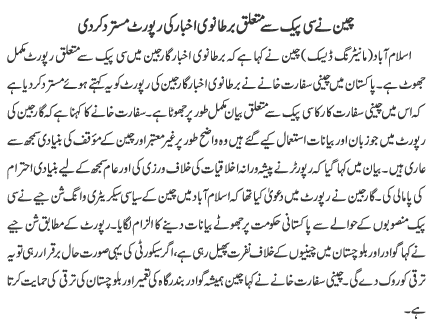 چین نے سی پیک سے متعلق برطانوی اخبار کی رپورٹ مسترد کر دی
اسلام آباد (مانیٹرنگ ڈیسک) چین نے کہا ہے کہ برطانوی اخبار گارجین میں سی پیک سے متعلق رپورٹ مکمل
جھوٹ ہے۔ پاکستان میں چینی سفارت خانے نے برطانوی اخبار گارجین کی رپورٹ کو یہ کہتے ہوئے مسترد کر دیا ہے
کہ اس میں چینی سفارت کار کا سی پیک سے متعلق بیان مکمل طور پر جھوٹا ہے۔ سفارت خانے کا کہنا ہے کہ گارجین کی
رپورٹ میں جو زبان اور بیانات استعمال کیے گئے ہیں وہ واضح طور پر غیر معتبر اور چین کے مؤقف کی بنیادی سمجھ سے
عاری ہیں۔ بیان میں کہا گیا کہ رپورٹر نے پیشہ ورانہ اخلاقیات کی خلاف ورزی کی اور عام سمجھ کے لیے بنیادی احترام
کی پامالی کی۔ گارجین نے رپورٹ میں دعویٰ کیا تھا کہ اسلام آباد میں چین کے سیاسی سیکریٹری وانگ شن جیے نے سی
پیک منصوبوں کے حوالے سے پاکستانی حکومت پر جھوٹے بیانات دینے کا الزام لگایا۔ رپورٹ کے مطابق شن جیے
نے کہا گوادر اور بلوچستان میں چینیوں کے خلاف نفرت پھیل رہی ہے، اگر سیکورٹی کی یہی صورت حال برقرار رہی تو یہ
ترقی کو روک دے گی۔ چینی سفارت خانے نے کہا چین ہمیشہ گوادر بندرگاہ کی تعمیر اور بلوچستان کی ترقی کی حمایت کرتا
ہے۔